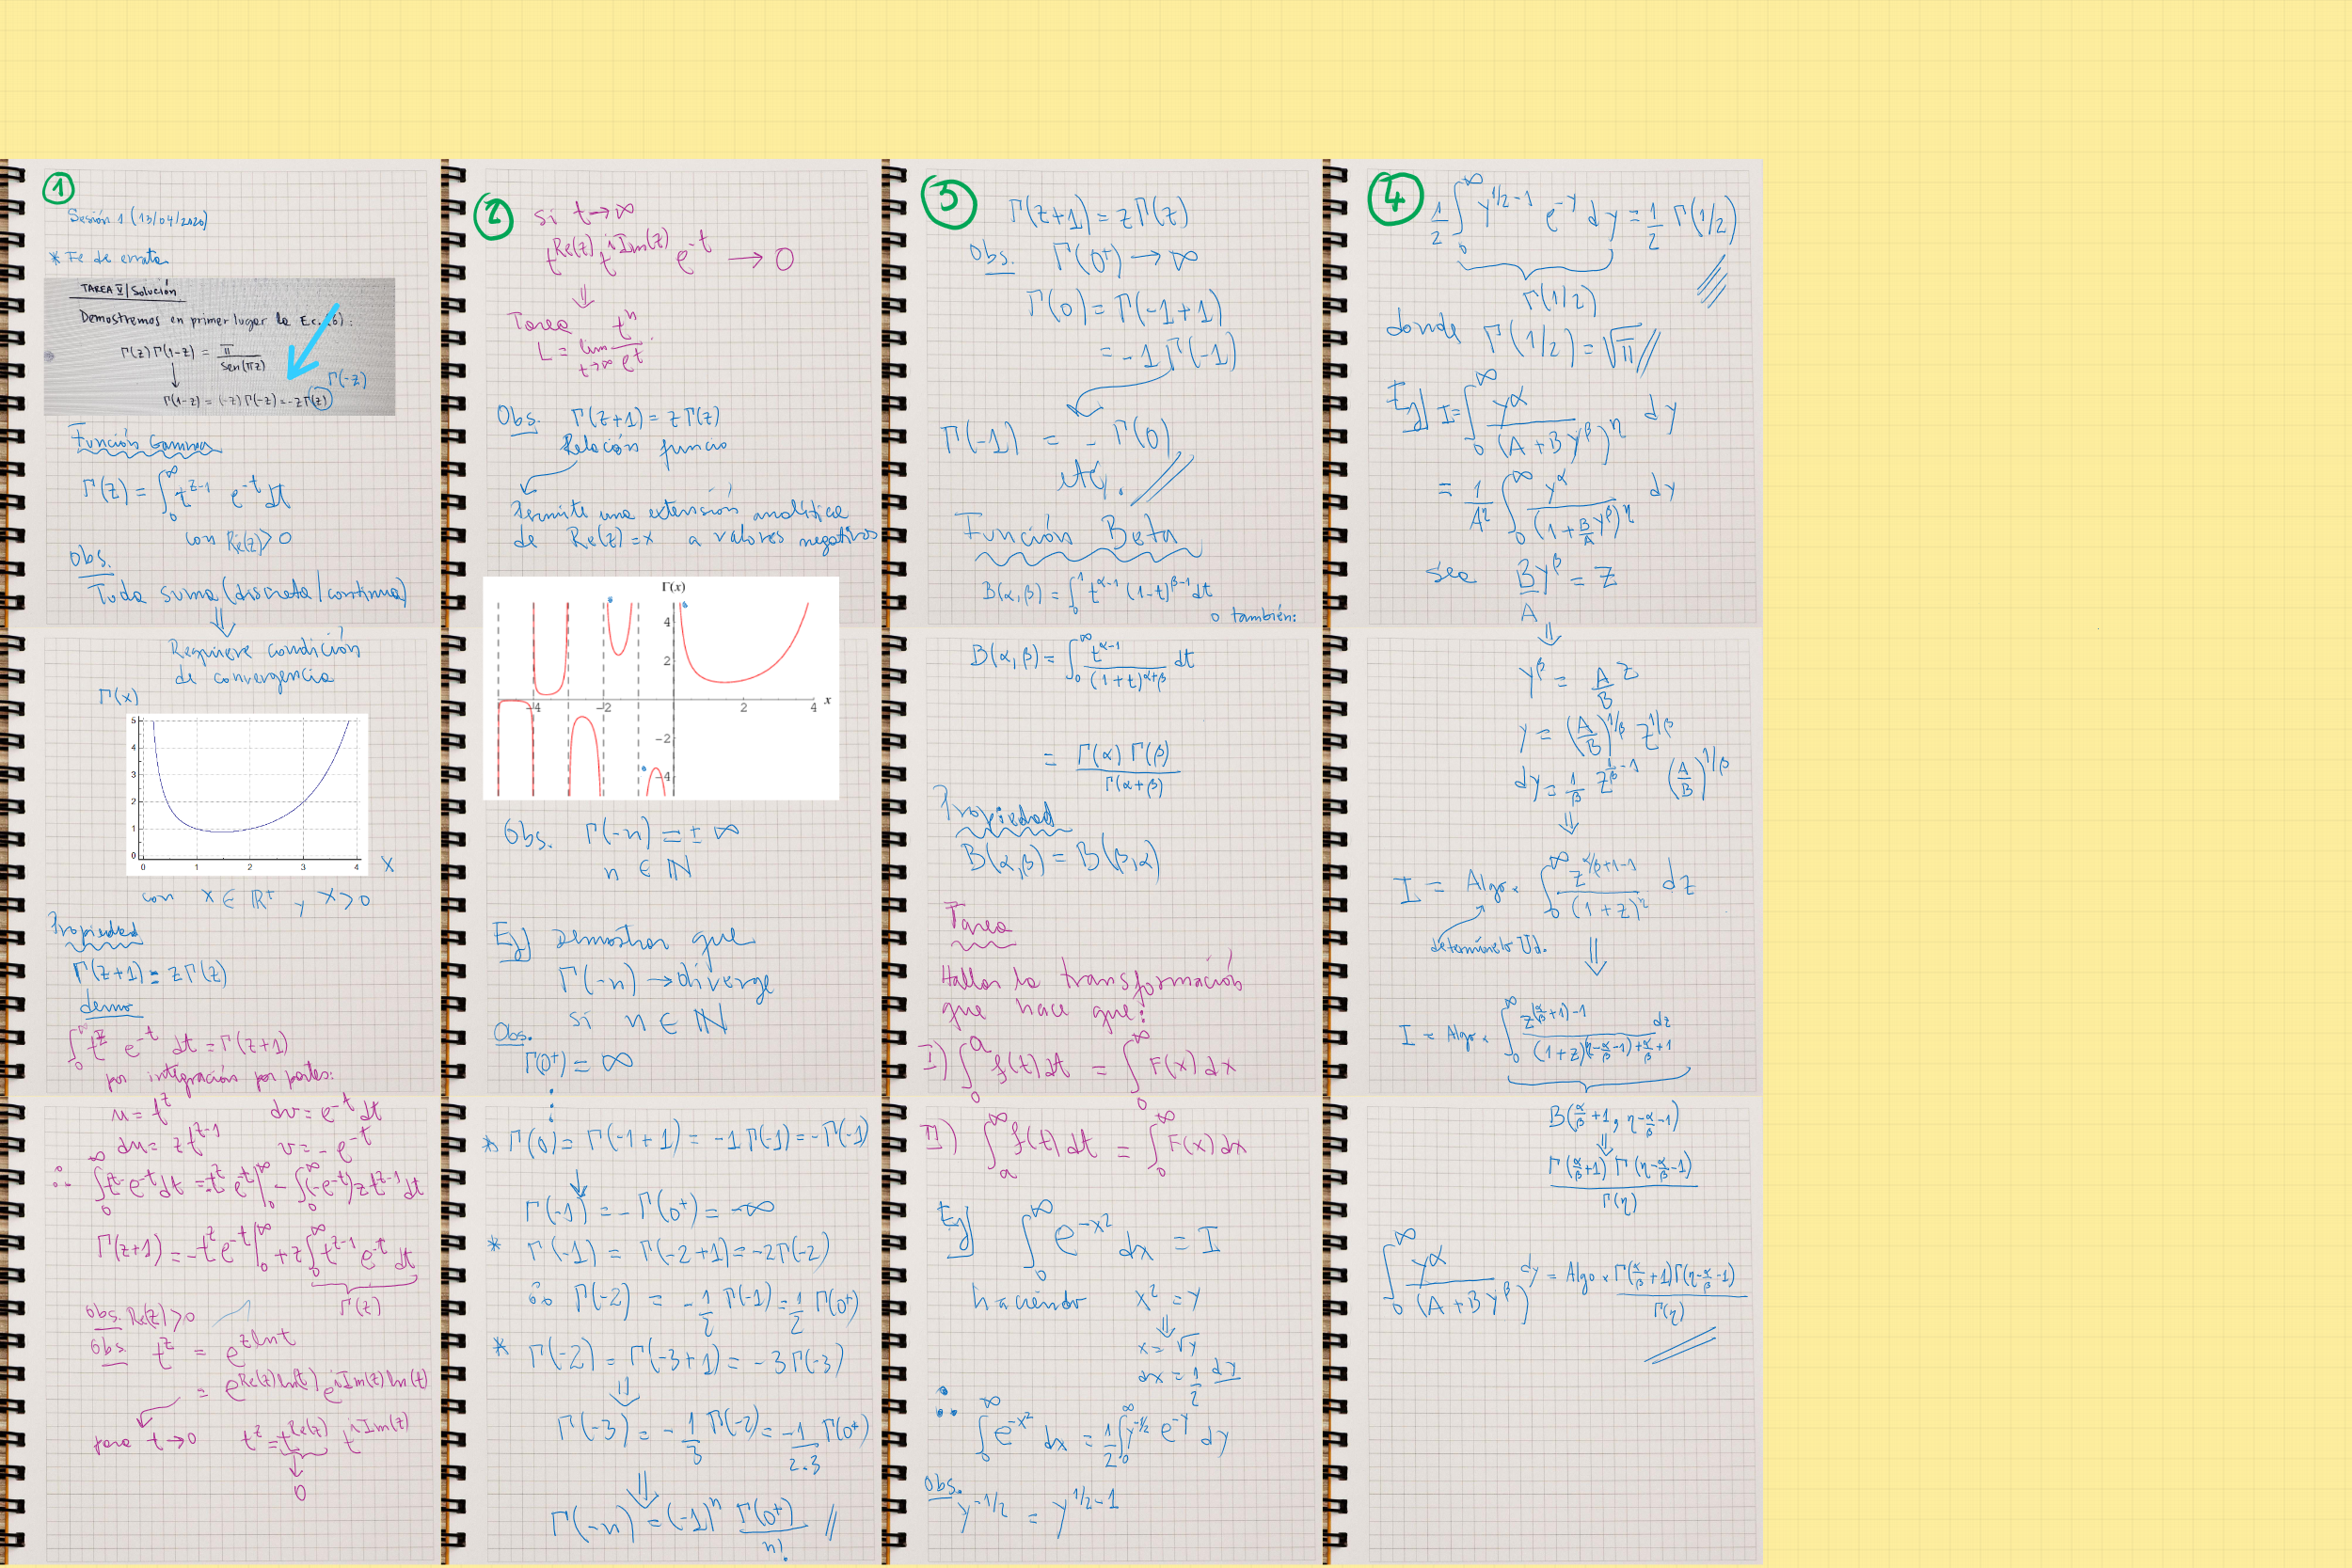 1
Sesión 1 (13/04/2020)
* Fe de errata
TAREA V | Solución
Demostremos en primer lugar la Ec. (6):
Γ(z)Γ(1-z) = π/sen(πz)
↓
Γ(1-z) = (-z)Γ(-z) = -zΓ(z)
Γ(-z)
Función Gamma
Γ(z) = ∫₀^∞ t^(z-1) e^(-t) dt
con Re(z)>0
Obs.
Toda suma (discreta/continua)
⇓
Requiere condición
de convergencia
Γ(x)
5
4
3
2
1
0
0 1 2 3 4
X
con x ∈ ℝ⁺ y x>0
Propiedad
Γ(z+1) = zΓ(z)
demo
∫₀^∞ t^z e^(-t) dt = Γ(z+1)
por integración por partes:
u = t^z dv = e^(-t) dt
du = z t^(z-1) v = -e^(-t)
∴ ∫₀^∞ t^z e^(-t) dt = -t^z e^(-t)|₀^∞ - ∫₀^∞ (-e^(-t)) z t^(z-1) dt
Γ(z+1) = -t^z e^(-t)|₀^∞ + z∫₀^∞ t^(z-1) e^(-t) dt
Γ(z)
obs. Re(z)>0
Obs. t^z = e^(z ln t)
= e^(Re(z) ln(t)) e^(i Im(z) ln(t))
para t→0 t^z = t^(Re(z)) t^(i Im(z))
↓
0
2
si t→∞
t^(Re(z)) t^(i Im(z)) e^(-t) → 0
⇓
Tarea
L = lim t→∞ t^n/e^t
Obs. Γ(z+1) = zΓ(z)
Relación funcio
Permite una extensión analítica
de Re(z)=x a valores negativos
Γ(x)
4
2
-4 -2 2 4 x
-2
-4
Obs. Γ(-n) = ±∞
n ∈ ℕ
Ej] Demostrar que
Γ(-n) → diverge
si n ∈ ℕ
Obs.
Γ(0⁺) = ∞
⋮
* Γ(0) = Γ(-1+1) = -1Γ(-1) = -Γ(-1)
↓
Γ(-1) = -Γ(0⁺) = -∞
* Γ(-1) = Γ(-2+1) = -2Γ(-2)
∴ Γ(-2) = -1/2 Γ(-1) = 1/2 Γ(0⁺)
* Γ(-2) = Γ(-3+1) = -3Γ(-3)
⇓
Γ(-3) = -1/3 Γ(-2) = -1/2.3 Γ(0⁺)
⇓
Γ(-n) = (-1)^n Γ(0⁺)/n! //
3
Γ(z+1) = zΓ(z)
Obs. Γ(0⁺) → ∞
Γ(0) = Γ(-1+1)
= -1Γ(-1)
Γ(-1) = -Γ(0)
etc. //
Función Beta
B(α,β) = ∫₀^1 t^(α-1) (1-t)^(β-1) dt
o también:
B(α,β) = ∫₀^∞ t^(α-1)/(1+t)^(α+β) dt
= Γ(α)Γ(β)/Γ(α+β)
Propiedad
B(α,β) = B(β,α)
Tarea
Hallar la transformación
que hace que:
I) ∫₀^a f(t)dt = ∫₀^∞ F(x)dx
II) ∫ₐ^∞ f(t)dt = ∫₀^∞ F(x)dx
Ej] ∫₀^∞ e^(-x²) dx = I
haciendo x² = y
⇓
x = √y
dx = 1/2 dy
∴ ∫₀^∞ e^(-x²) dx = 1/2 ∫₀^∞ y^(-1/2) e^(-y) dy
Obs.
y^(-1/2) = y^(1/2-1)
4
1/2 ∫₀^∞ y^(1/2-1) e^(-y) dy = 1/2 Γ(1/2)
Γ(1/2)
donde Γ(1/2) = √π //
Ej] I = ∫₀^∞ y^α/(A+By^β)^η dy
= 1/A^η ∫₀^∞ y^α/(1+B/A y^β)^η dy
sea B/A y^β = z
⇓
y^β = A/B z
y = (A/B)^(1/β) z^(1/β)
dy = 1/β z^(1/β-1) (A/B)^(1/β)
⇓
I = Algo × ∫₀^∞ z^(α/β+1-1)/(1+z)^η dz
determínelo Ud.
⇓
I = Algo × ∫₀^∞ z^((α/β+1)-1)/(1+z)^((η-α/β-1)+α/β+1) dz
B(α/β+1, η-α/β-1)
⇓
Γ(α/β+1)Γ(η-α/β-1)/Γ(η)
∫₀^∞ y^α/(A+By^β) dy = Algo × Γ(α/β+1)Γ(η-α/β-1)/Γ(η)